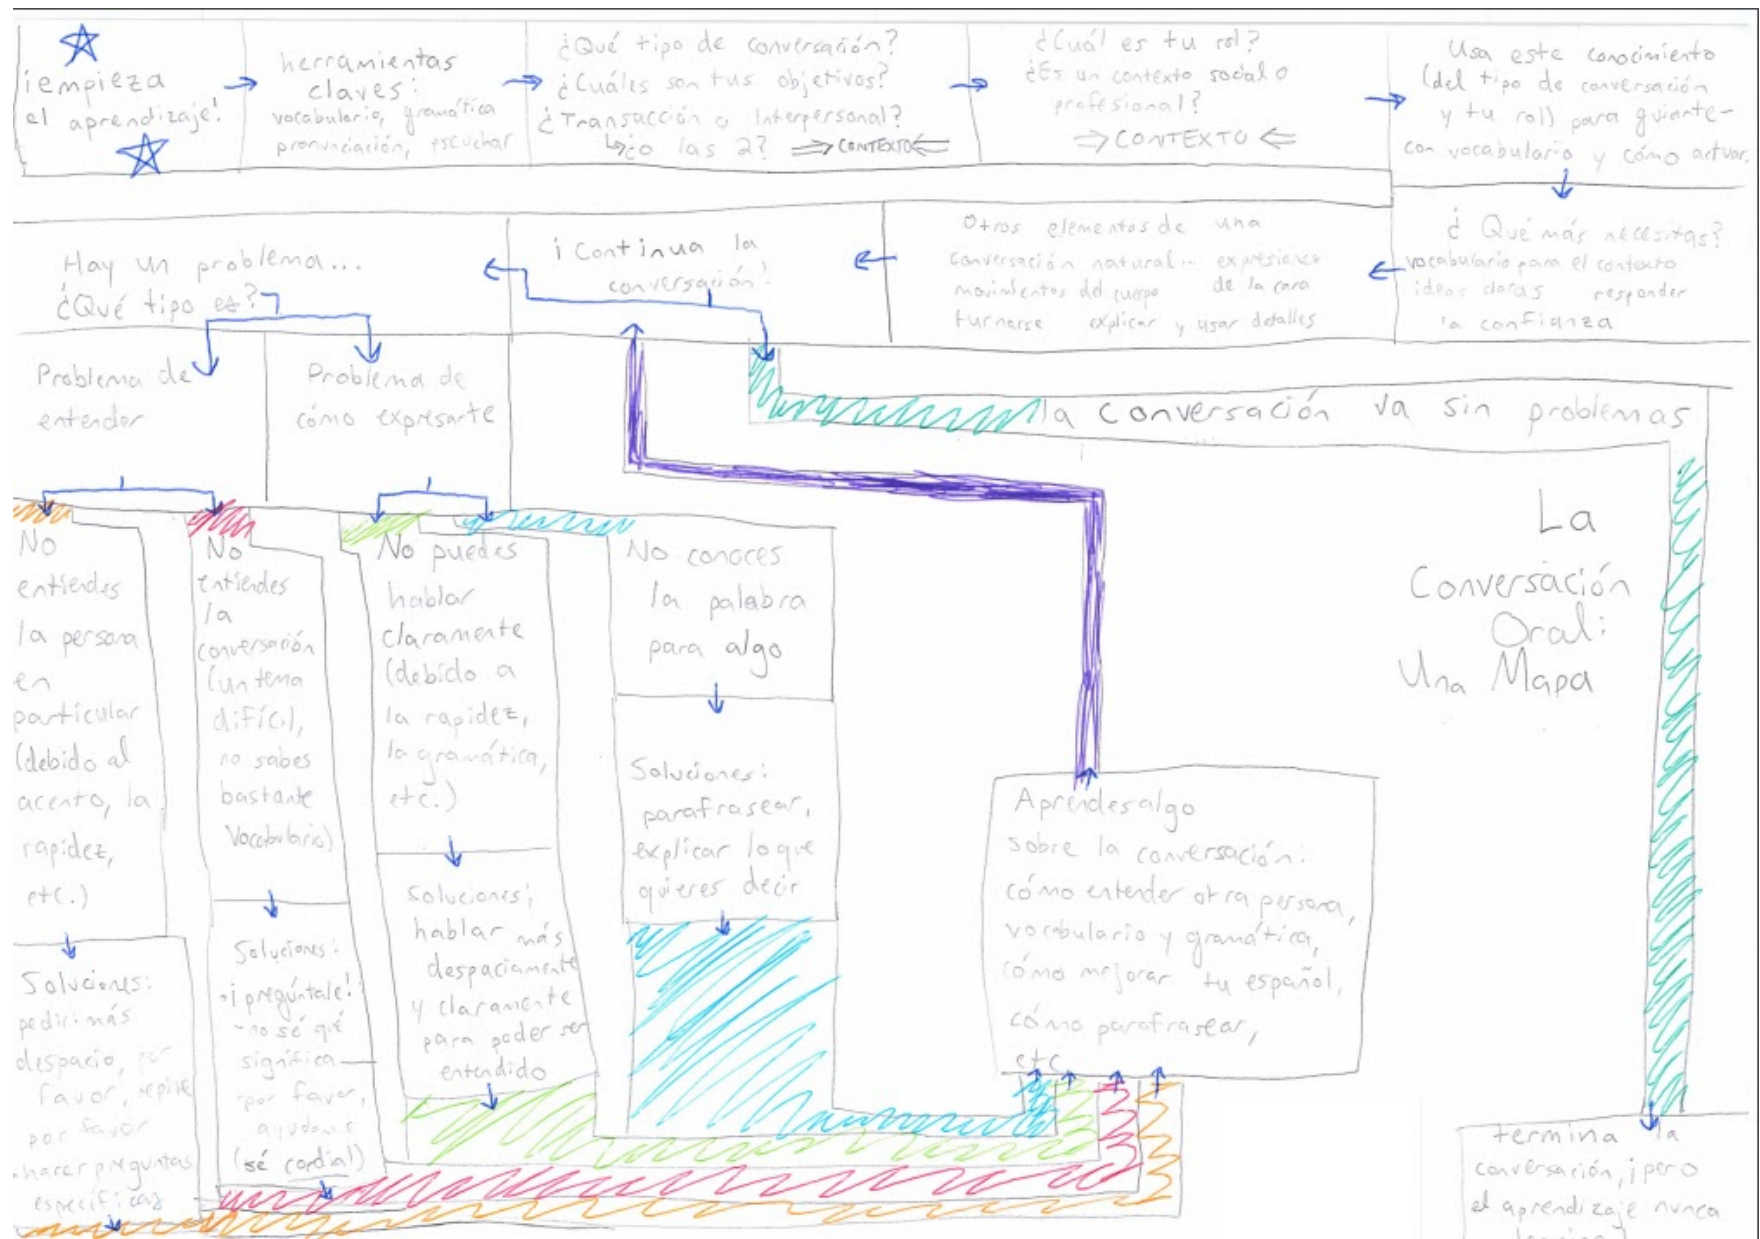 ¡empieza
el aprendizaje!
herramientas
claves:
vocabulario, gramática
pronunciación, escuchar
¿Qué tipo de conversación?
¿Cuáles son tus objetivos?
¿Transacción o Interpersonal?
¿o las 2? ⇒CONTEXTO⇐
¿Cuál es tu rol?
¿Es un contexto social o
profesional?
⇒CONTEXTO⇐
Usa este conocimiento
(del tipo de conversación
y tu rol) para guiarte-
con vocabulario y cómo actuar.
¿Qué más necesitas?
vocabulario para el contexto
ideas claras responder
la confianza
Otros elementos de una
conversación natural... expresiones
movimientos del cuerpo de la cara
turnarse explicar y usar detalles
¡Continua la
conversación!
Hay un problema...
¿Qué tipo es?
Problema de
entender
Problema de
cómo expresarte
la conversación va sin problemas
La
Conversación
Oral:
Una Mapa
No
entiendes
la persona
en
particular
(debido al
acento, la
rapidez,
etc.)
Soluciones:
pedir: más
despacio, por
favor, repite
por favor
·hacer preguntas
específicas
No
entiendes
la
conversación
(un tema
difícil,
no sabes
bastante
vocabulario)
Soluciones:
·¡pregúntale!
-no sé qué
significa—
-por favor,
ayudame
(sé cordial)
No puedes
hablar
claramente
(debido a
la rapidez,
la gramática,
etc.)
Soluciones:
hablar más
despaciamente
y claramente
para poder ser
entendido
No conoces
la palabra
para algo
Soluciones:
parafrasear,
explicar lo que
quieres decir
Aprendes algo
sobre la conversación:
cómo entender otra persona,
vocabulario y gramática,
cómo mejorar tu español,
cómo parafrasear,
etc
termina la
conversación, ¡pero
el aprendizaje nunca